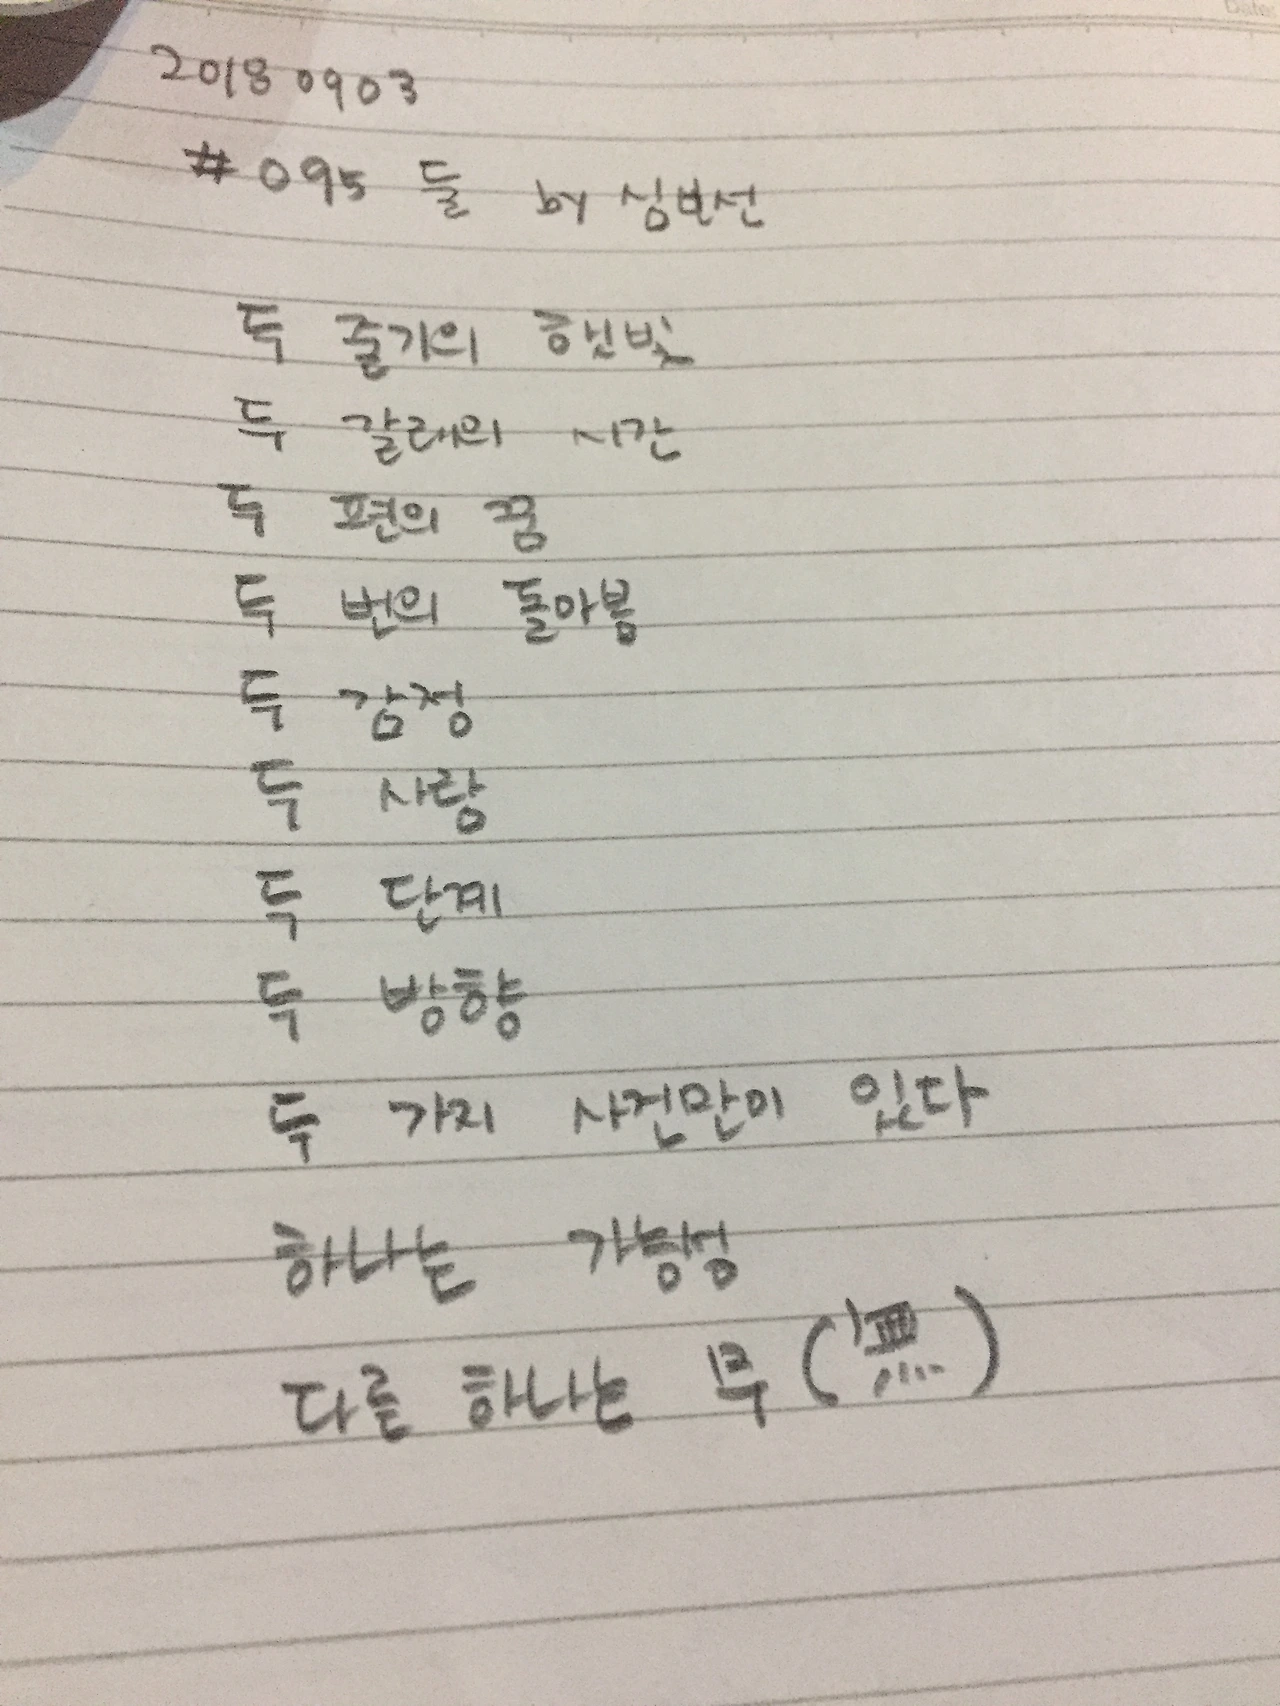 Date:
2018 0903
#095 둘 by 심보선
두 줄기의 햇빛
두 갈래의 시간
두 편의 꿈
두 번의 돌아봄
두 감정
두 사람
두 단계
두 방향
두 가지 사건만이 있다
하나는 가능성
다른 하나는 무(無)